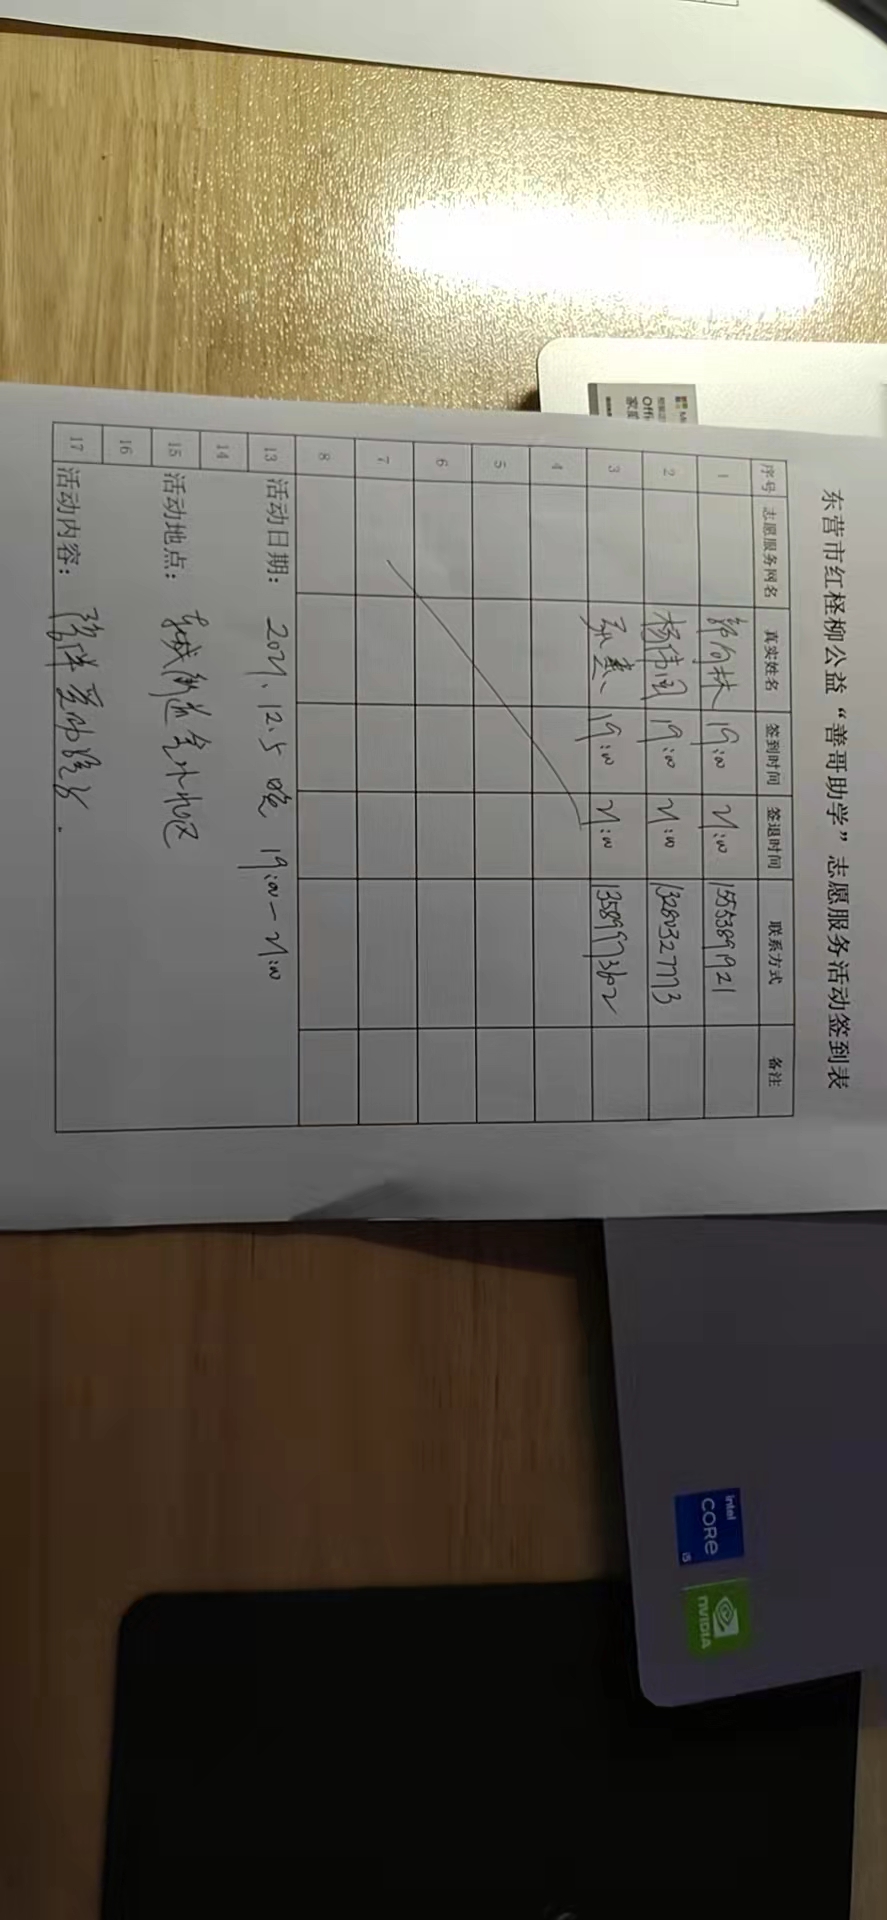 东营市红柽柳公益“善哥助学”志愿服务活动签到表
序号 志愿服务网名 真实姓名 签到时间 签退时间 联系方式 备注
1 19:00 21:00 15553891921
2 杨伟国 19:00 21:00 13280327773
3 19:00 21:00 13589973602
4
5
6
7
8
13 活动日期: 2021.12.5 晚 19:00-21:00
14
15 活动地点: 东城街道
16
17 活动内容:
intel
CORE
i5
NVIDIA